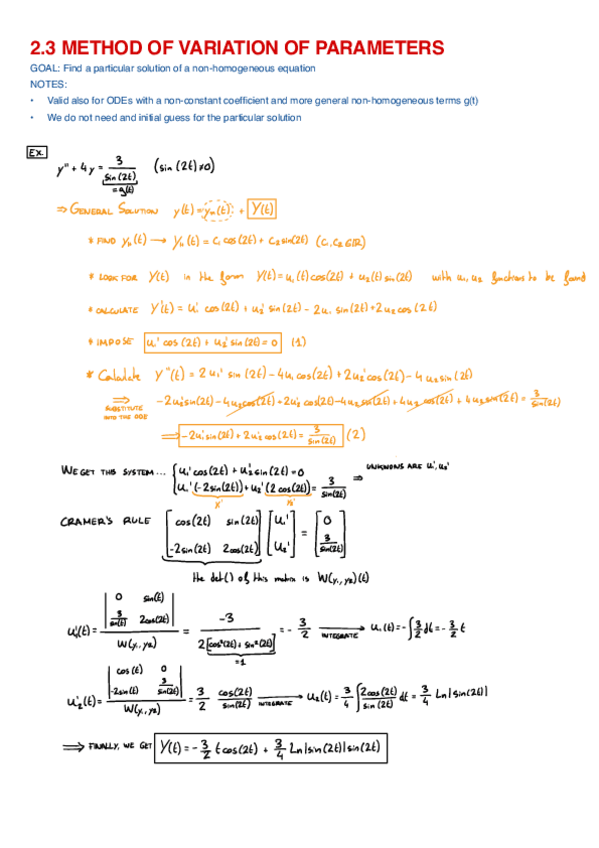 2.3 METHOD OF VARIATION OF PARAMETERS
GOAL: Find a particular solution of a non-homogeneous equation
NOTES:
• Valid also for ODEs with a non-constant coefficient and more general non-homogeneous terms g(t)
• We do not need and initial guess for the particular solution
Ex. y'' + 4y = 3/sin(2t) (sin(2t)≠0)
=g(t)
⇒ GENERAL SOLUTION y(t) = yₕ(t) + Y(t)
* FIND yₕ(t) → yₕ(t) = C₁ cos(2t) + C₂ sin(2t) (C₁, C₂ ∈ ℝ)
* LOOK FOR Y(t) in the form Y(t) = u₁(t) cos(2t) + u₂(t) sin(2t) with u₁, u₂ functions to be found
* CALCULATE Y'(t) = u₁' cos(2t) + u₂' sin(2t) - 2u₁ sin(2t) + 2u₂ cos(2t)
* IMPOSE u₁' cos(2t) + u₂' sin(2t) = 0 (1)
* Calculate Y''(t) = 2u₁' sin(2t) - 4u₁ cos(2t) + 2u₂' cos(2t) - 4u₂ sin(2t)
⇒ SUBSTITUTE INTO THE ODE -2u₁' sin(2t) - 4u₁ cos(2t) + 2u₂' cos(2t) - 4u₂ sin(2t) + 4u₁ cos(2t) + 4u₂ sin(2t) = 3/sin(2t)
⇒ -2u₁' sin(2t) + 2u₂' cos(2t) = 3/sin(2t) (2)
WE GET THIS SYSTEM... { u₁' cos(2t) + u₂' sin(2t) = 0 ⇒ UNKNOWNS ARE u₁', u₂'
u₁' (-2sin(2t)) + u₂' (2cos(2t)) = 3/sin(2t)
CRAMER'S RULE [cos(2t) sin(2t)] [u₁'] = [0]
[-2sin(2t) 2cos(2t)] [u₂'] [3/sin(2t)]
the det() of this matrix is W(y₁, y₂)(t)
u₁'(t) = |0 sin(2t); 3/sin(2t) 2cos(2t)| / W(y₁, y₂) = -3 / 2[cos²(2t) + sin²(2t)] = -3/2 ⇒ INTEGRATE u₁(t) = -∫3/2 dt = -3/2 t
=1
u₂'(t) = |cos(t) 0; -2sin(t) 3/sin(2t)| / W(y₁, y₂) = 3/2 cos(2t)/sin(2t) INTEGRATE → u₂(t) = 3/4 ∫ 2cos(2t)/sin(2t) dt = 3/4 Ln|sin(2t)|
⇒ FINALLY, WE GET Y(t) = -3/2 t cos(2t) + 3/4 Ln|sin(2t)| sin(2t)